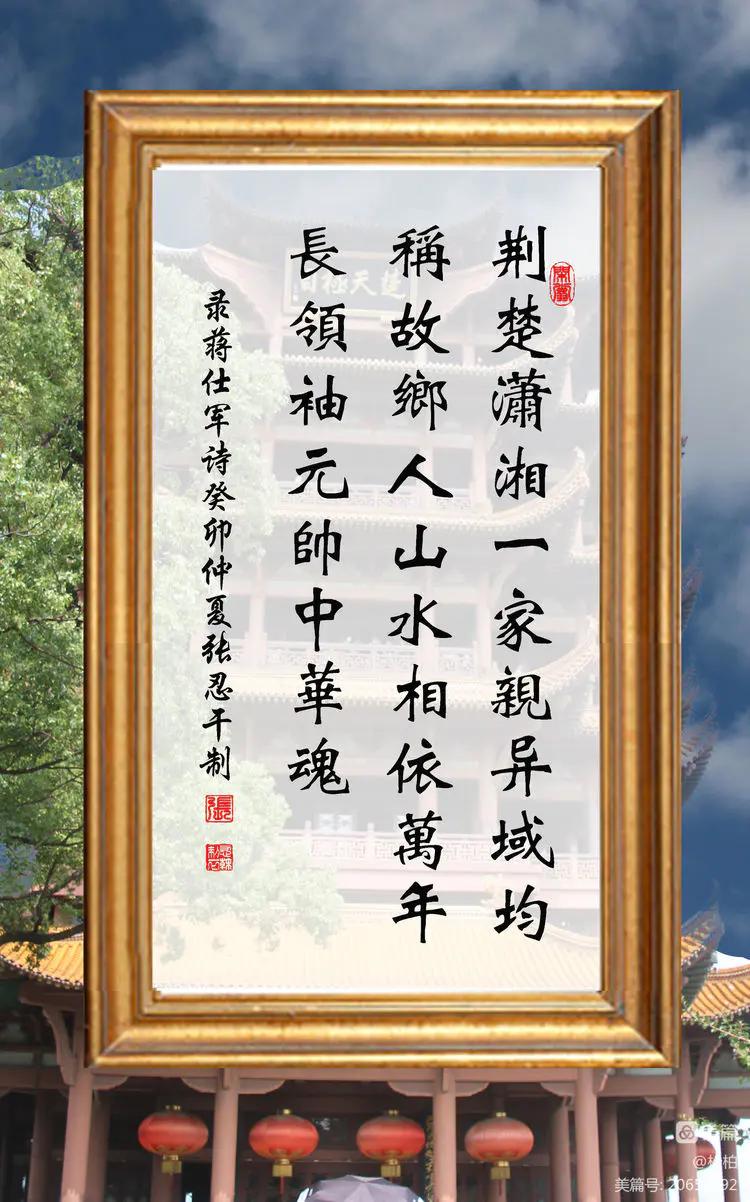 荆楚瀟湘一家親异域均
稱故鄉人山水相依萬年
長領袖元帥中華魂
录蒋仕军诗癸卯仲夏张忍干制
張
楚天極目
美篇
美篇号: